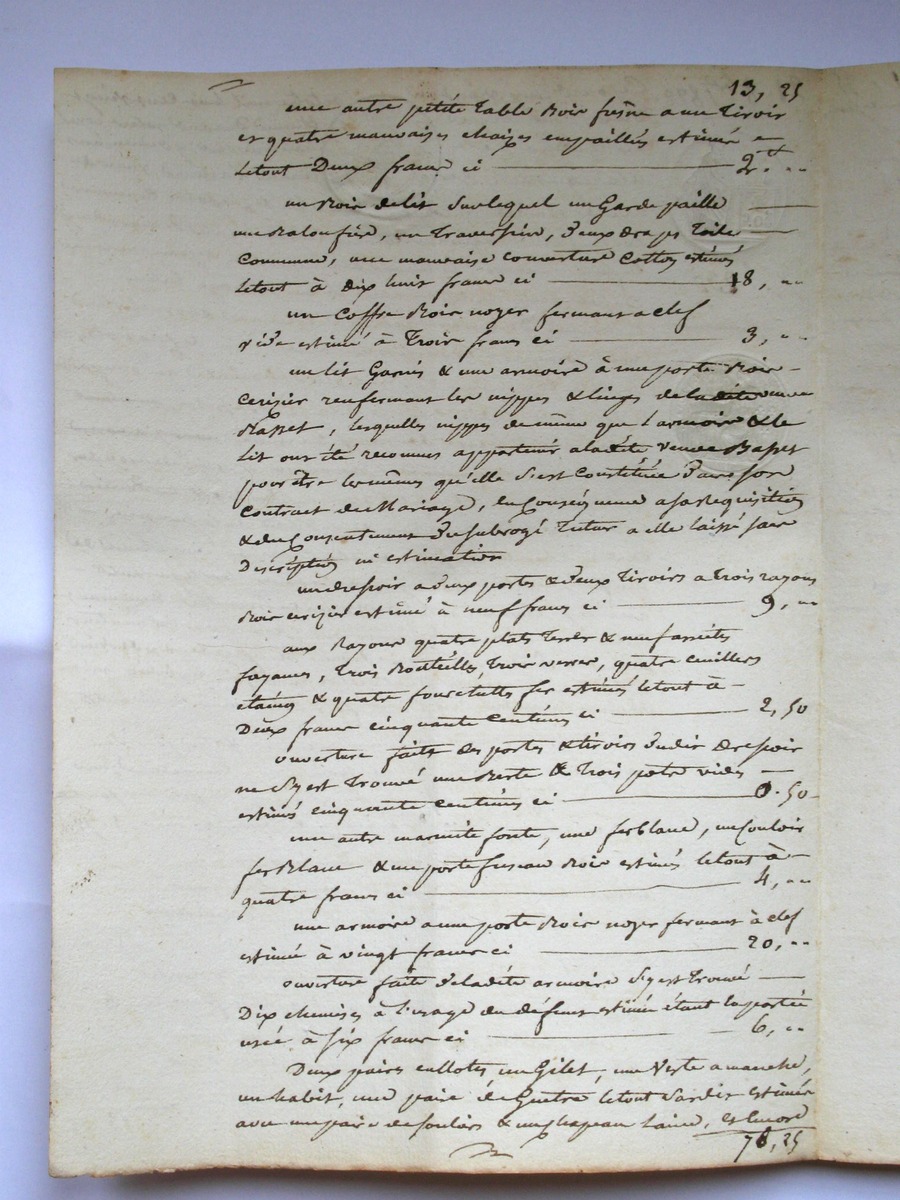 13, 25
une autre petite table Bois frêne a un Tiroir
et quatre mauvaises chaises empaillés estimé
letout Deux francs ci 2.tt "
un Bois delit Surlequel un Garde paille
une Baloufière, un Traversin, deux draps toile
commune, une mauvaise couverture Cotton estimés
letout à Dix huit francs ci 18, "
un Coffre Bois noyer fermant a clef
vide estimé à Trois francs ci 3, "
un lit Garnis & une armoire à une porte Bois
Cerisier renfermant les nippes & linges de ladite veuve
Basset, lesquelles nippes de même que l'armoire & le
lit ont été reconnus appartenir aladite veuve Basset
pour être les mêmes qu'elle s'est Constituée dans son
Contract de Mariage, en Conséquence a sa Requisition
& du Consentement du subrogé Tutur a elle laissé sans
Description ni estimation
un dressoir a deux portes & deux Tiroirs a trois rayons
Bois cerisier estimé à neuf francs ci 9, "
aux Rayons quatre plats terre & neuf assiétes
fayances, trois Bouteilles, trois verres, quatre cuillers
étaing & quatre fourchettes fer estimés letout à
Deux francs cinquante Centimes ci 2, 50
ouverture faite des portes & tiroirs dudit Dressoir
ne s'y est Trouvé une Berte & trois pots vides
estimés cinquante centimes ci 0. 50
une autre marmite fonte, une ferblanc, un Couloir
fer Blanc & une porte fuseau Bois estimés letout à
quatre francs ci 4, "
une armoire a une porte Bois noyer fermant à clef
estimée à vingt francs ci 20, "
ouverture faite deladite armoire s'y est Trouvé
Dix chemises à l'usage du défunt estimé étant la portée
usée à six francs ci 6, "
Deux paires cullotes un Gilet, une Veste a manche,
un habit, une paire de Guetre letout Sardis estimés
avec une paire de souliers & un chapeau laine, et encore
78, 25